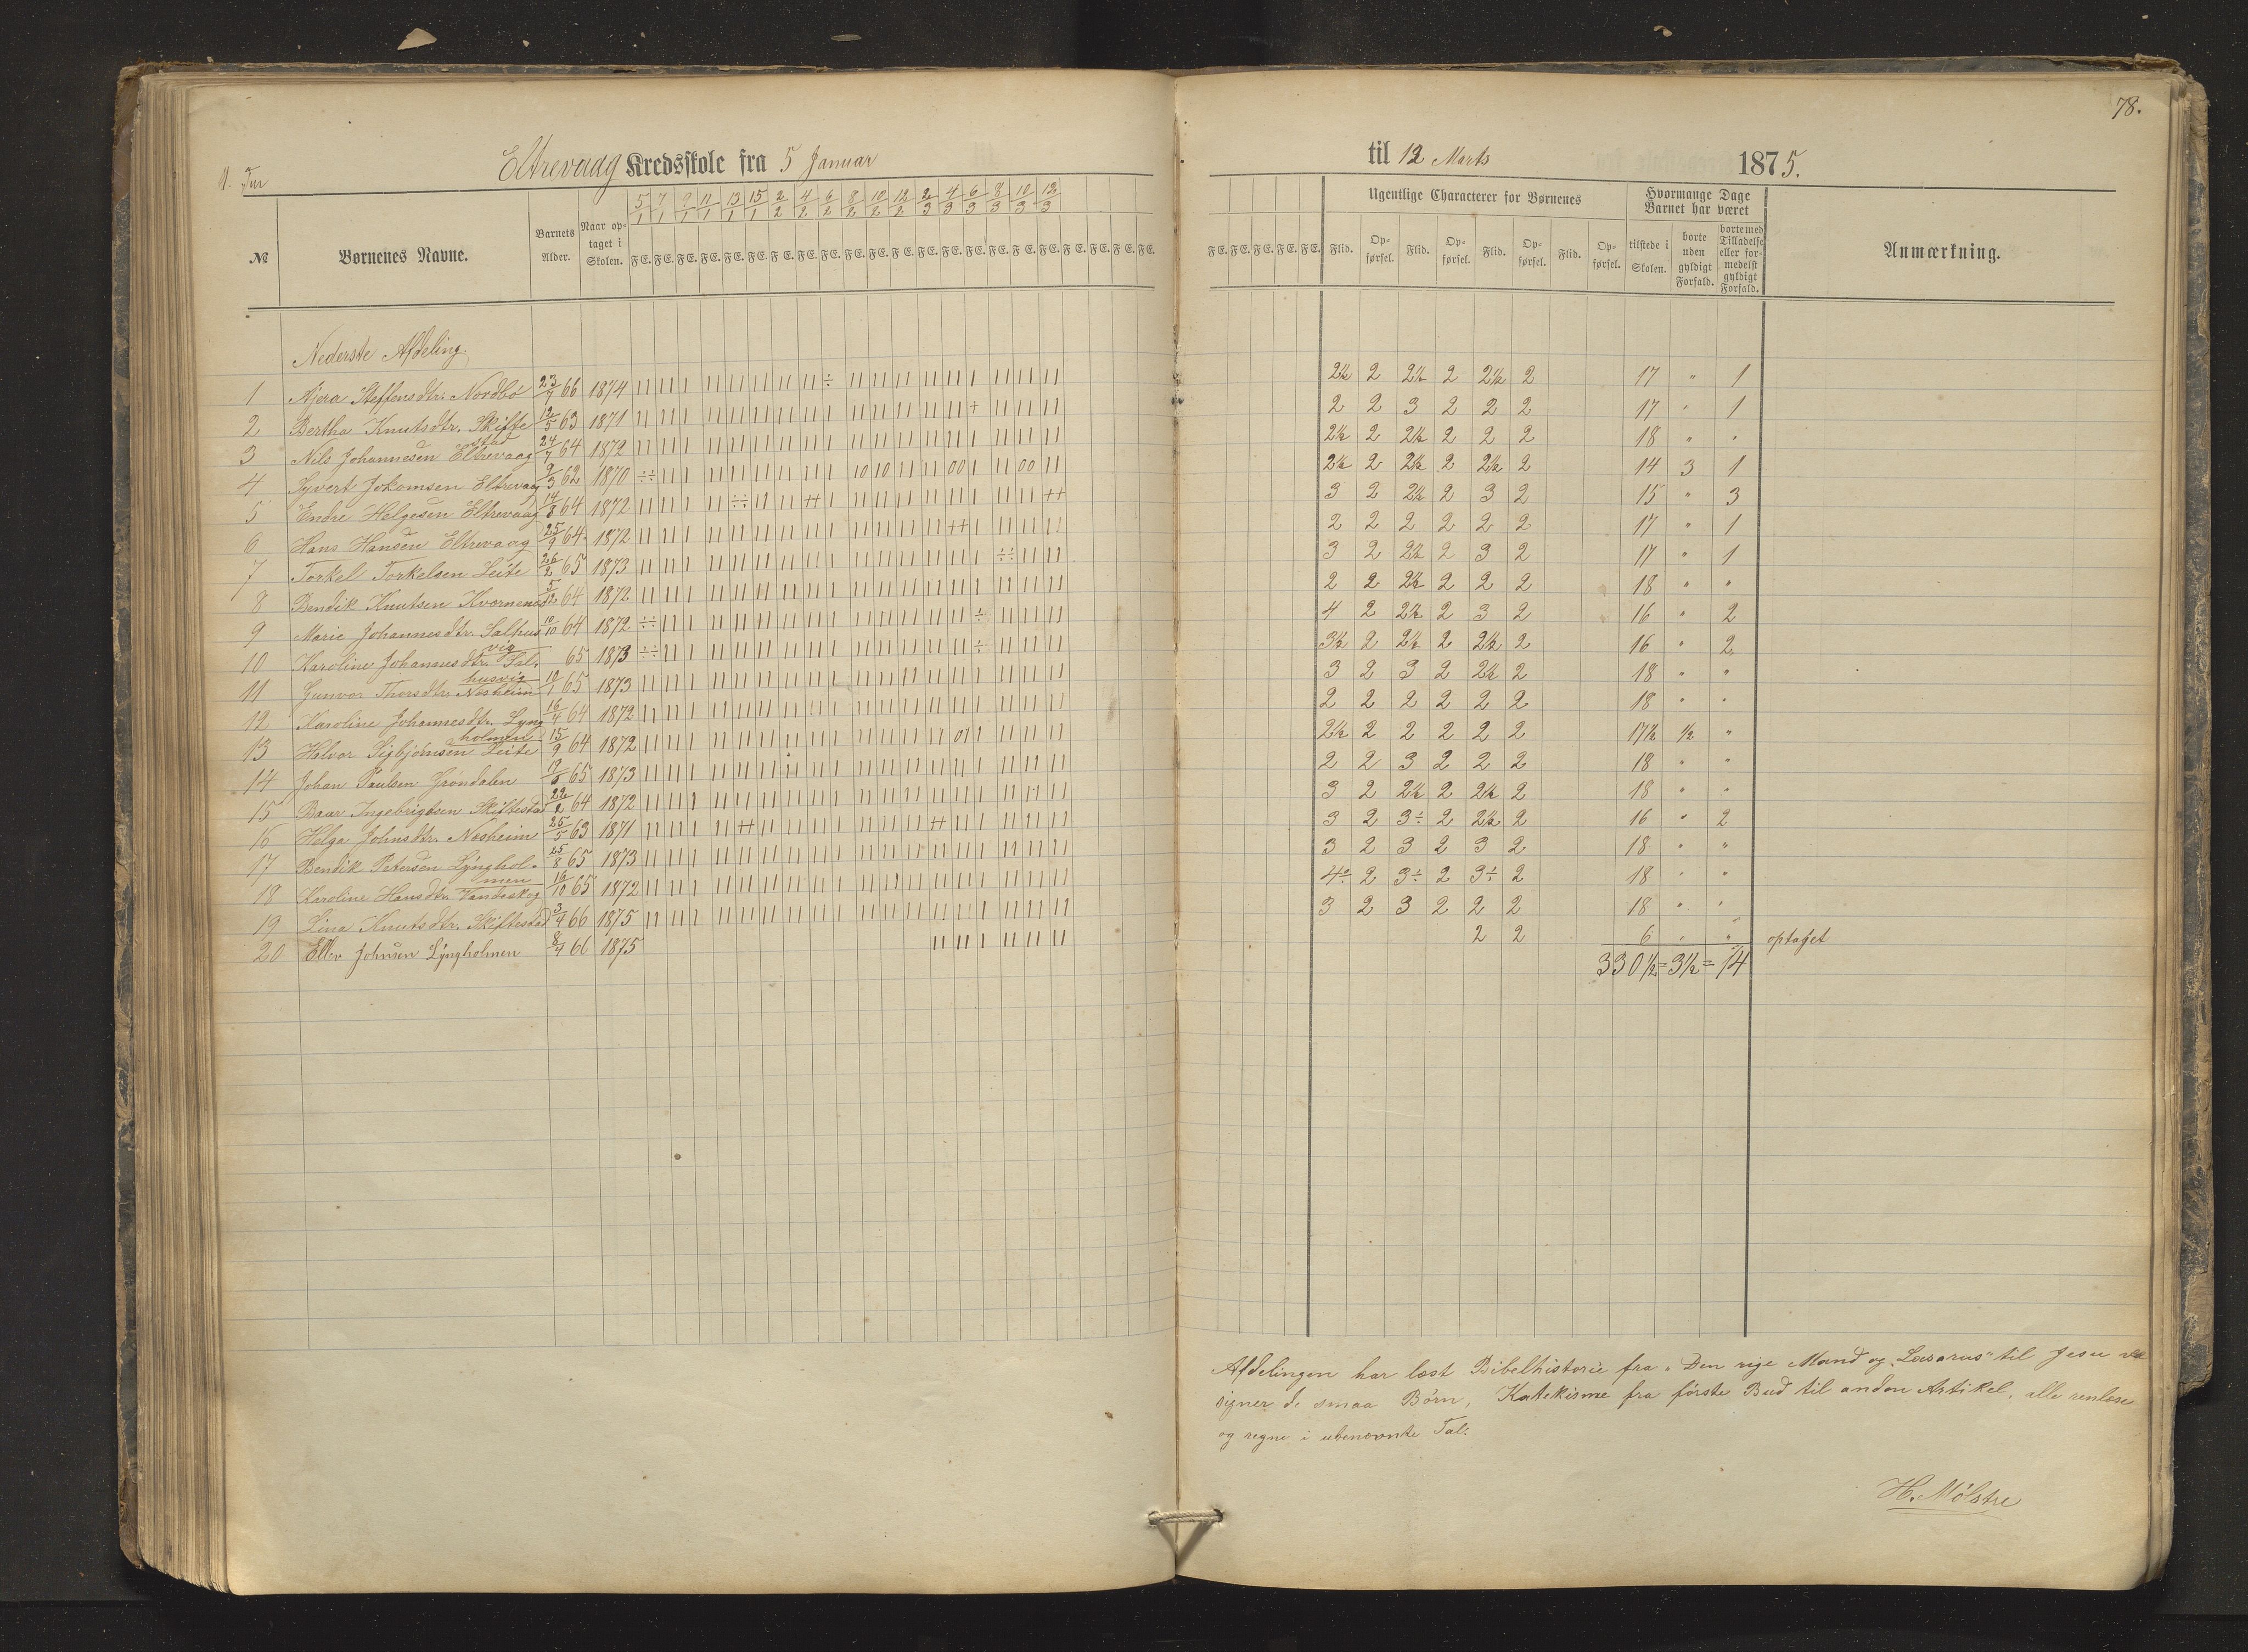 78.
Eltrevaag Kredsskole fra 5 Januar til 12 Marts 1875.
№ Børnenes Navne. Barnets Alder. Naar optaget i Skolen. 5/1 7/1 9/1 11/1 13/1 15/1 2/2 4/2 6/2 8/2 10/2 12/2 2/3 4/3 6/3 8/3 10/3 12/3
F E. F E. F E. F E. F E. F E. F E. F E. F E. F E. F E. F E. F E. F E. F E. F E. F E. F E. F E. F E. F E. F E.
F E. F E. F E. F E. F E.
Ugentlige Characterer for Børnenes
Flid. Opførsel. Flid. Opførsel. Flid. Opførsel. Flid. Opførsel.
Hvormange Dage Barnet har været
tilstede i Skolen. borte uden gyldigt Forfald. borte med Tilladelse eller formedelst gyldigt Forfald.
Anmærkning.
Nederste Afdeling.
1 Steffensdtr. Nordbø 23/7 66 1874 2½ 2 2½ 2 2½ 2 17 " 1
2 Bertha Knutsdtr. Skiftestad 12/5 63 1871 2 2 3 2 2 2 17 " 1
3 Nils Johannesen Eltrevaag 24/7 64 1872 2½ 2 2½ 2 2 2 18 " "
4 Syvert Eltrevaag 9/3 62 1870 2½ 2 2½ 2 2½ 2 14 3 1
5 Endre Helgesen Eltrevaag 14/8 64 1872 3 2 2½ 2 3 2 15 " 3
6 Hans Hansen Eltrevaag 25/9 64 1872 2 2 2 2 2 2 17 " 1
7 Torkel Torkelsen Leite 26/2 65 1873 3 2 2½ 2 3 2 17 " 1
8 Bendik Knutsen 5/12 64 1872 2 2 2½ 2 2 2 18 " "
9 Marie Johannesdtr. Salhusvig 10/10 64 1872 4 2 2½ 2 3 2 16 " 2
10 Karoline Johannesdtr. Salhusvig 65 1873 3½ 2 2½ 2 2½ 2 16 " 2
11 Gunvor Thorsdtr. Næsheim 10/1 65 1873 3 2 3 2 2½ 2 18 " "
12 Karoline Johannesdtr. Lyngholmen 16/4 64 1872 2 2 2 2 2 2 18 " "
13 Halvor Sigbjørnsen Leite 15/9 64 1872 2½ 2 2 2 2 2 17½ ½ "
14 Johan Paulsen Grøndalen 65 1873 2 2 3 2 2 2 18 " "
15 Baar Ingebrigtsen Skiftestad 22/2 64 1872 3 2 2½ 2 2½ 2 18 " "
16 Helga Johnsdtr. Næsheim 25/5 63 1871 3 2 3÷ 2 2½ 2 16 " 2
17 Bendik Petersen Lyngholmen 25/8 65 1873 3 2 3 2 3 2 18 " "
18 Karoline Hansdtr. Vandeskog 16/10 65 1872 4÷ 2 3÷ 2 3÷ 2 18 " "
19 Lina Knutsdtr. Skiftestad 3/4 66 1875 3 2 3 2 2 2 18 " "
20 Johnsen Lyngholmen 8/4 66 1875 2 2 6 " " optaget
330½ = 3½ = 14
Afdelingen har læst Bibelhistorie fra "Den rige Mand og Lasarus" til Jesu vel
signer de smaa Børn, Katekisme fra første Bud til anden Artikel, alle renlæse
og regne i ubenævnte Tal.
H. Mølstre